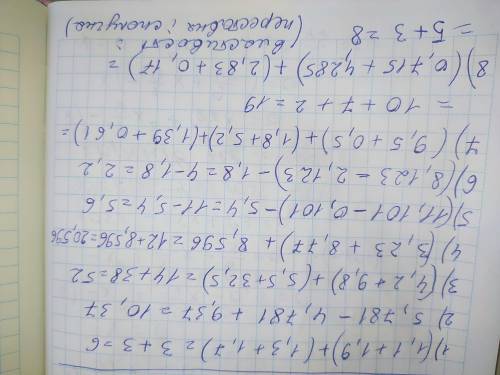 1) (1,1+1,9)+(1,3+1,7)=3+3=6
2) 5,781 - 4,781 + 9,37 = 10,37
3) (4,2+9,8)+(5,5+32,5)=14+38=52
4) (3,23+8,77)+8,596=12+8,596=20,596
5) (11,101-0,101)-5,4=11-5,4=5,6
6) (8,123-2,123)-1,8=4-1,8=2,2
7) (9,5+0,5)+(1,8+5,2)+(1,39+0,61)=
=10+7+2=19
8) (0,715+4,285)+(2,83+0,17)=
=5+3=8 (властивості:
(переставна і сполучна)